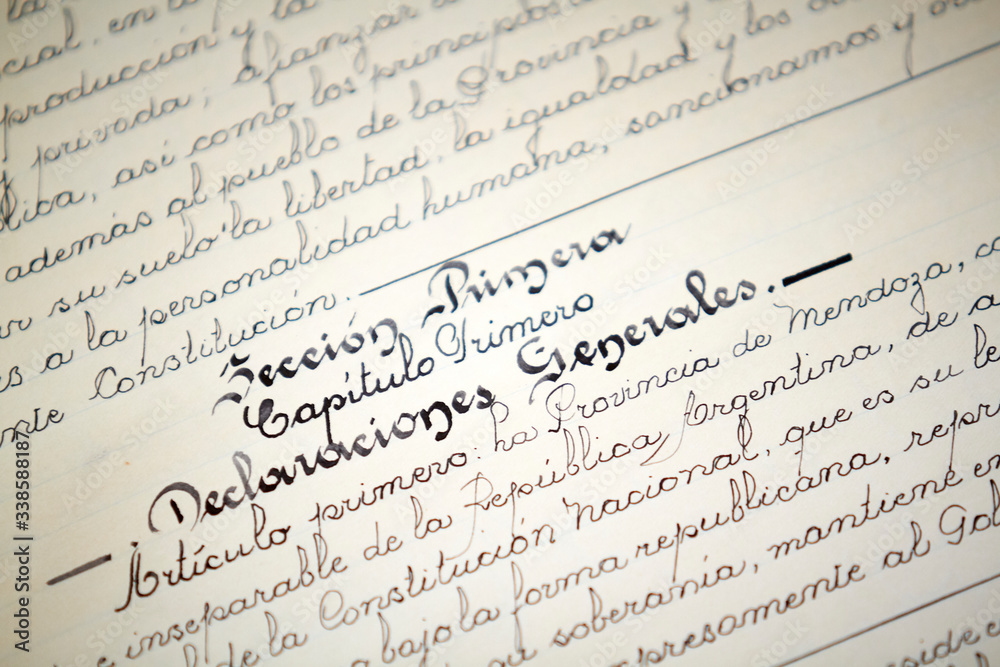 la
cial, en
producción y la
y privada; afianzar
así como los principios
además al pueblo de la Provincia y
su suelo la libertad, la igualdad y los
a la personalidad humana, sancionamos y
Constitución.—
Sección Primera
Capítulo Primero
— Declaraciones Generales.—
Artículo primero: La Provincia de Mendoza,
e inseparable de la República Argentina, de a
de la Constitución Nacional, que es su le
bajo la forma republicana, repr
su soberanía, mantiene en
presamente al Gob
side e
Adobe Stock | #338588187